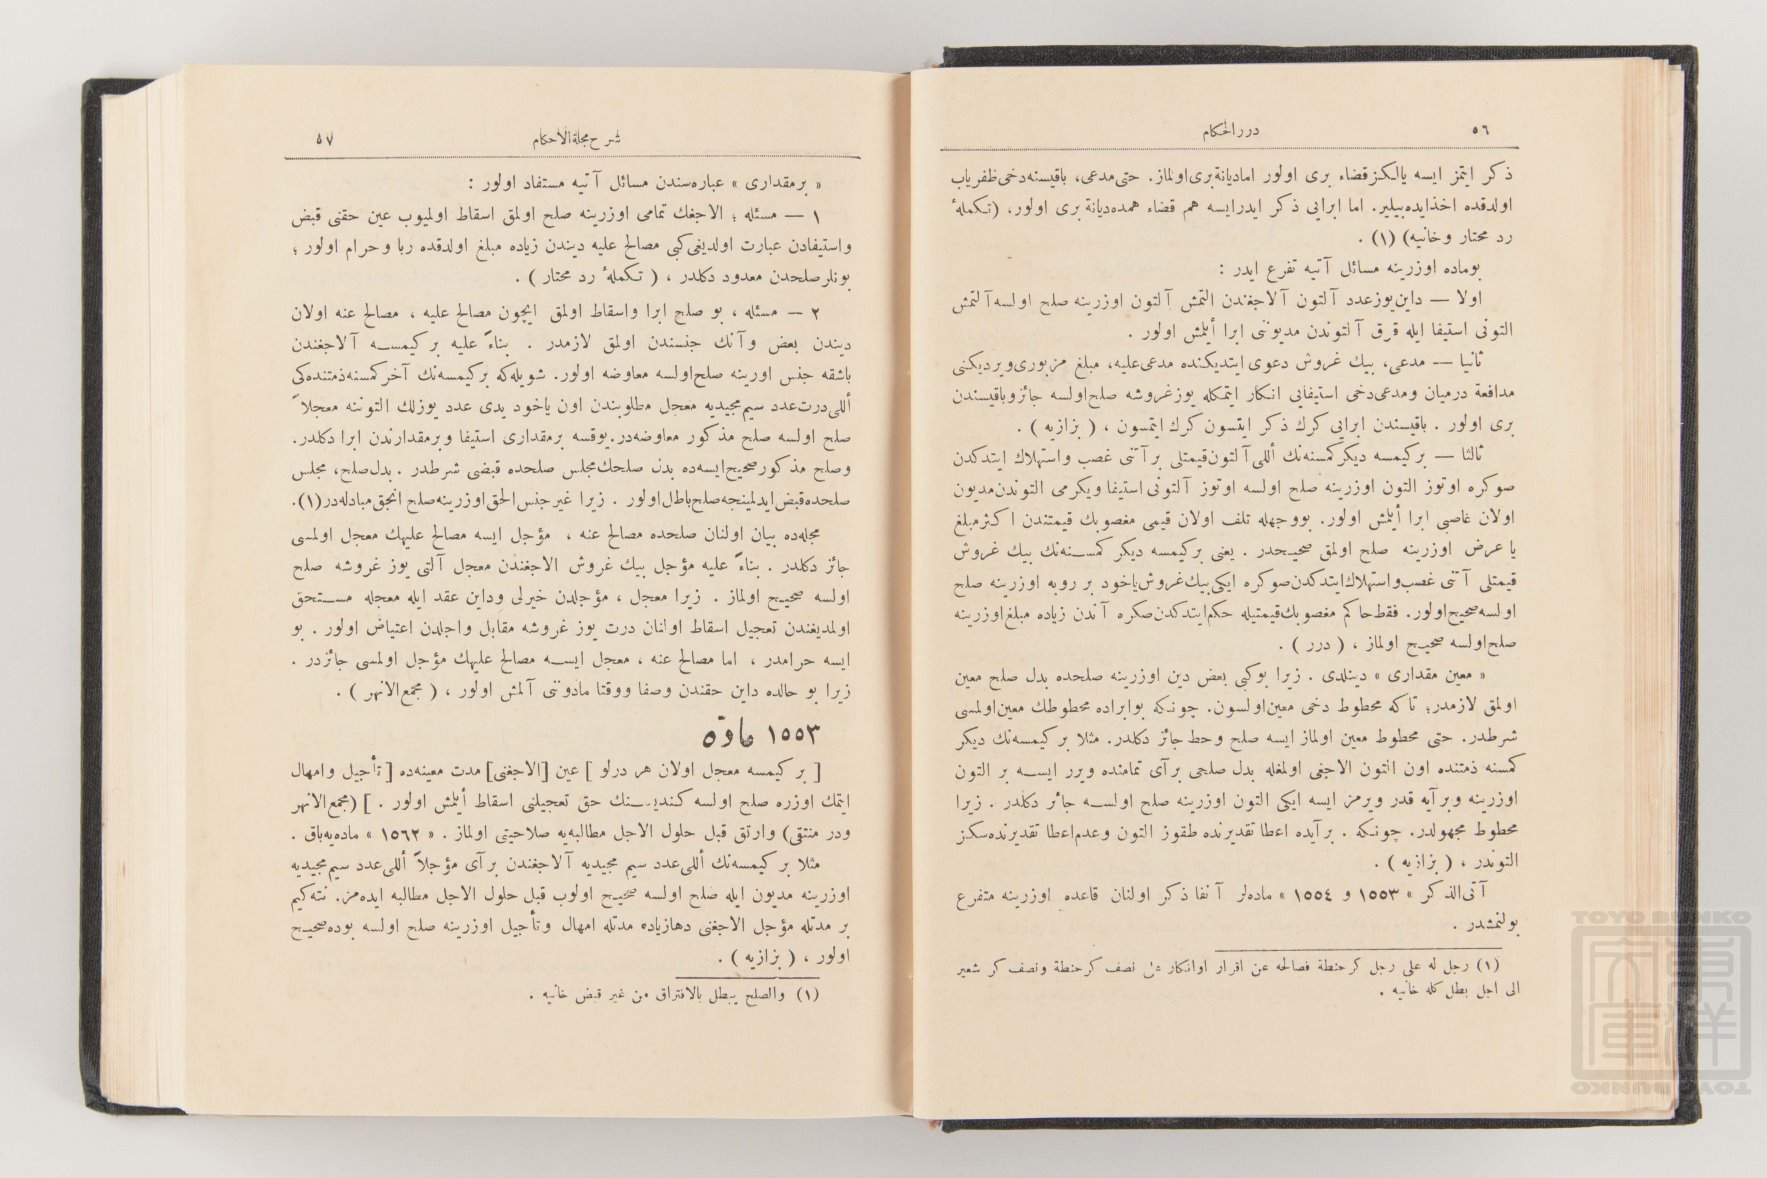 ٥٦
درر الحكام
ذكر ايتمز ايسه يالكز قضاء برى اولور اما ديانة برى اولماز. حتى مدعى، باقيسنه دخى ظفرياب
اولدقده اخذ ايده بيلير. اما ابرايى ذكر ايدرايسه هم قضاء همده ديانة برى اولور، (تكملهٔ
رد محتار وخانيه) (١) .
بو ماده اوزرينه مسائل آتيه تفرع ايدر :
اولا — داين يوز عدد آلتون آلاجغندن التمش آلتون اوزرينه صلح اولسه آلتمش
التونى استيفا ايله قرق آلتوندن مديوننى ابرا أيلمش اولور .
ثانيا — مدعى، بيك غروش دعوى ايتديكنده مدعى عليه، مبلغ مزبورى ويرديكنى
مدافعة درميان ومدعى دخى استيفايى انكار ايتمكله يوز غروشه صلح اولسه جائز وباقيسندن
برى اولور . باقيسندن ابرايى كرك ذكر ايتسون كرك ايتمسون ، ( بزازيه ) .
ثالثا — بر كيمسه ديكر كمسنه نك أللى آلتون قيمتلى بر آتنى غصب واستهلاك ايتدكدن
صوكره اوتوز التون اوزرينه صلح اولسه اوتوز آلتونى استيفا ويكرمى التوندن مديون
اولان غاصبى ابرا أيلمش اولور. بووجهله تلف اولان قيمى مغصوبك قيمتندن اكثر مبلغ
يا عرض اوزرينه صلح اولمق صحيحدر . يعنى بر كيمسه ديكر كمسنه نك بيك غروش
قيمتلى آتنى غصب واستهلاك ايتدكدن صوكره ايكى بيك غروش ياخود بر روبه اوزرينه صلح
اولسه صحيح اولور. فقط حاكم مغصوبك قيمتيله حكم ايتدكدن صكره آندن زياده مبلغ اوزرينه
صلح اولسه صحيح اولماز ، ( درر ) .
« معين مقدارى » دينلدى . زيرا بوكبى بعض دين اوزرينه صلحده بدل صلح معين
اولمق لازمدر؛ تا كه محطوط دخى معين اولسون. چونكه بوابراده محطوطك معين اولمسى
شرطدر. حتى محطوط معين اولماز ايسه صلح وحط جائز دكلدر. مثلا بر كيمسه نك ديكر
كمسنه ذمتنده اون التون الاجغى اولمغله بدل صلحى بر آى تمامنده ويرر ايسه بر التون
اوزرينه وبر آيه قدر ويرمز ايسه ايكى التون اوزرينه صلح اولسه جائز دكلدر . زيرا
محطوط مجهولدر. چونكه . بر آيده اعطا تقديرنده طقوز التون وعدم اعطا تقديرنده سكز
التوندر ، ( بزازيه ) .
آتى الذكر « ١٥٥٣ و ١٥٥٤ » ماده لر آنفا ذكر اولنان قاعده اوزرينه متفرع
بولنمشدر .
(١) رجل له على رجل كر حنطة فصالحه عن اقرار اوانكار على نصف كر حنطة ونصف كر شعير
الى اجل بطل كله خانيه .
شرح مجلة الاحكام
٥٧
« بر مقدارى » عباره سندن مسائل آتيه مستفاد اولور :
١ — مسئله ؛ الاجغك تمامى اوزرينه صلح اولمق اسقاط اولميوب عين حقنى قبض
واستيفادن عبارت اولديغى كبى مصالح عليه ديندن زياده مبلغ اولدقده ربا وحرام اولور ؛
بونلر صلحدن معدود دكلدر ، ( تكملهٔ رد محتار ) .
٢ — مسئله ، بو صلح ابرا واسقاط اولمق ايچون مصالح عليه ، مصالح عنه اولان
ديندن بعض وآنك جنسندن اولمق لازمدر . بناءً عليه بر كيمسه آلاجغندن
باشقه جنس اوزرينه صلح اولسه معاوضه اولور. شويله كه بر كيمسه نك آخر كمسنه ذمتنده كى
أللى درت عدد سيم مجيديه معجل مطلوبندن اون ياخود يدى عدد يوزلك التوننه معجلاً
صلح اولسه صلح مذكور معاوضه در. يوقسه بر مقدارى استيفا وبر مقدارندن ابرا دكلدر.
وصلح مذكور صحيح ايسه ده بدل صلحك مجلس صلحده قبضى شرطدر . بدل صلح، مجلس
صلحده قبض ايدلمينجه صلح باطل اولور . زيرا غير جنس الحق اوزرينه صلح انجق مبادله در(١).
مجله ده بيان اولنان صلحده مصالح عنه ، مؤجل ايسه مصالح عليهك معجل اولمسى
جائز دكلدر . بناءً عليه مؤجل بيك غروش الاجغندن معجل آلتى يوز غروشه صلح
اولسه صحيح اولماز . زيرا معجل ، مؤجلدن خيرلى وداين عقد ايله معجله مستحق
اولمديغندن تعجيل اسقاط اولنان درت يوز غروشه مقابل واجلدن اعتياض اولور . بو
ايسه حرامدر ، اما مصالح عنه ، معجل ايسه مصالح عليهك مؤجل اولمسى جائزدر .
زيرا بو حالده داين حقندن وصفا ووقتا مادوننى آلمش اولور ، ( مجمع الانهر ) .
١٥٥٣ ماده
[ بر كيمسه معجل اولان هر درلو ] عين [الاجغنى] مدت معينه ده [ تأجيل وامهال
ايتمك اوزره صلح اولسه كنديسنك حق تعجيلنى اسقاط أيلمش اولور . ] (مجمع الانهر
ودر منتقى) وارتق قبل حلول الاجل مطالبه يه صلاحيتى اولماز . « ١٥٦٢ » ماده يه باق .
مثلا بر كيمسه نك أللى عدد سيم مجيديه آلاجغندن بر آى مؤجلاً أللى عدد سيم مجيديه
اوزرينه مديون ايله صلح اولسه صحيح اولوب قبل حلول الاجل مطالبه ايده مز. نته كيم
بر مدتله مؤجل الاجغنى دها زياده مدتله امهال وتأجيل اوزرينه صلح اولسه بوده صحيح
اولور ، ( بزازيه ) .
(١) والصلح يبطل بالافتراق من غير قبض خانيه .
TOYO BUNKO
東洋文庫